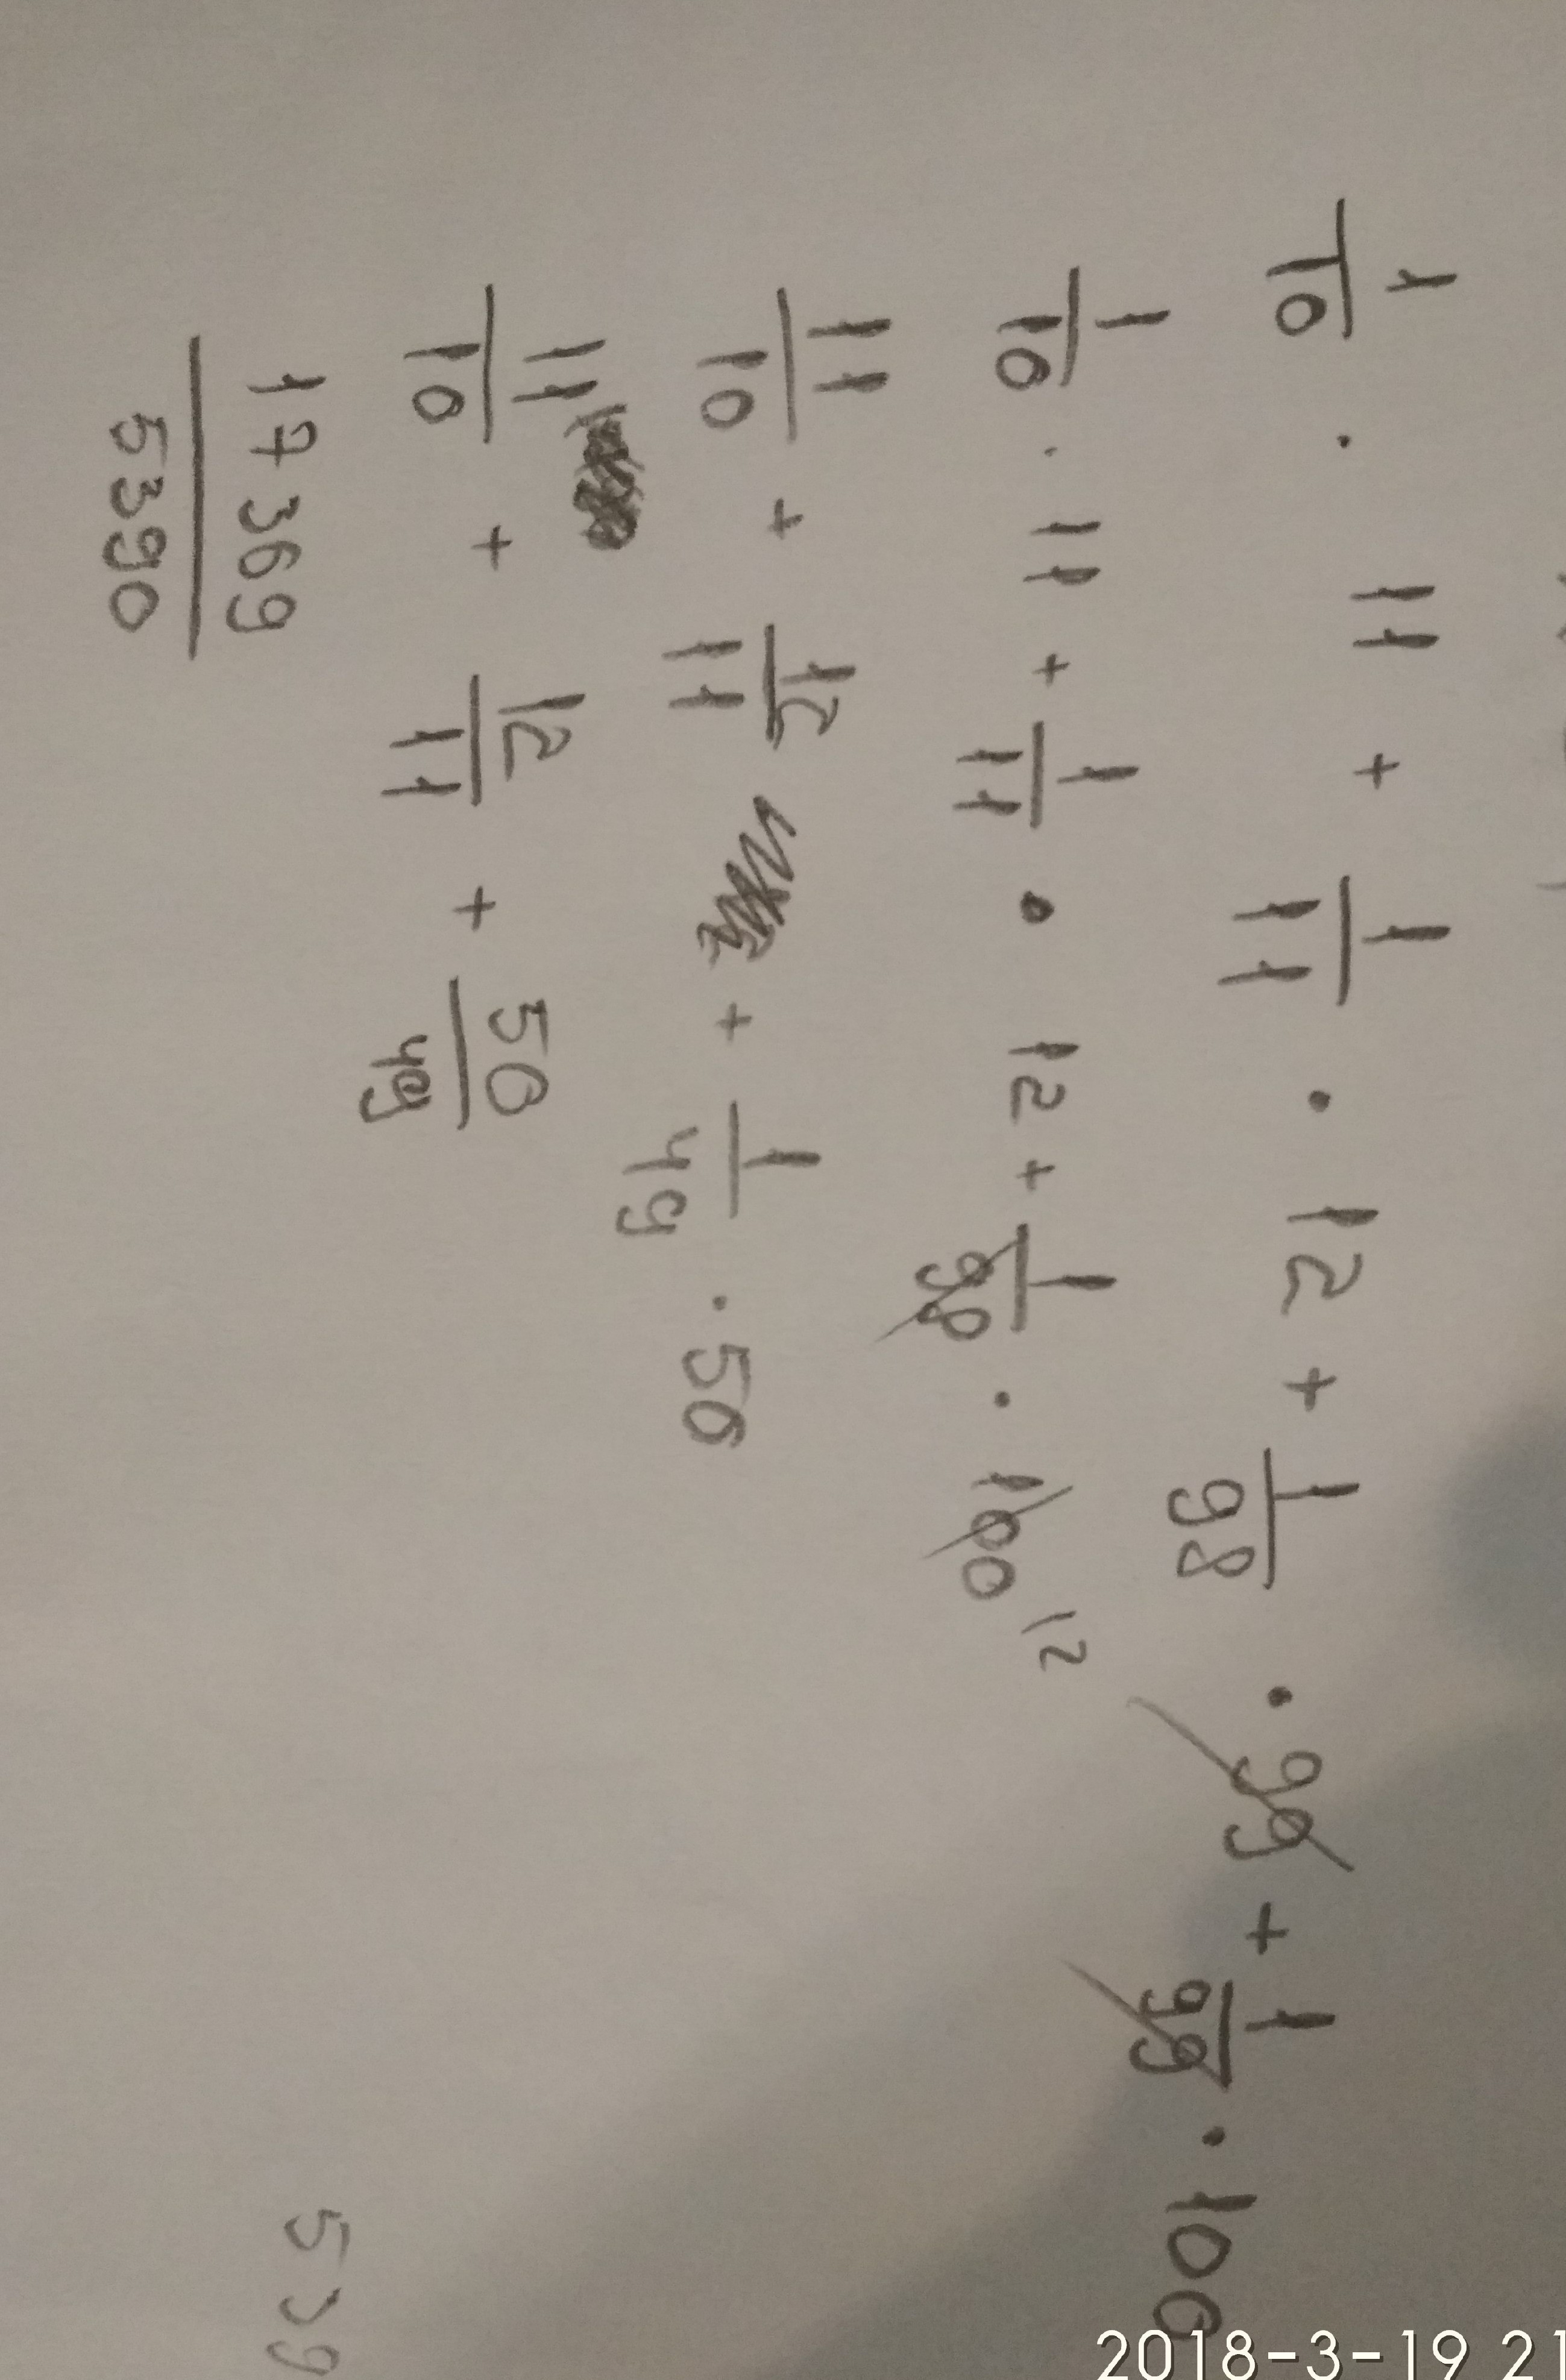 1/10 · 11 + 1/11 · 12 + 1/98 · 99 + 1/99 · 100
1/10 · 11 + 1/11 · 12 + 1/98 · 100 12
11/10 + 12/11 + 1/49 · 50
11/10 + 12/11 + 50/49
17369/5390
539
2018-3-19 21